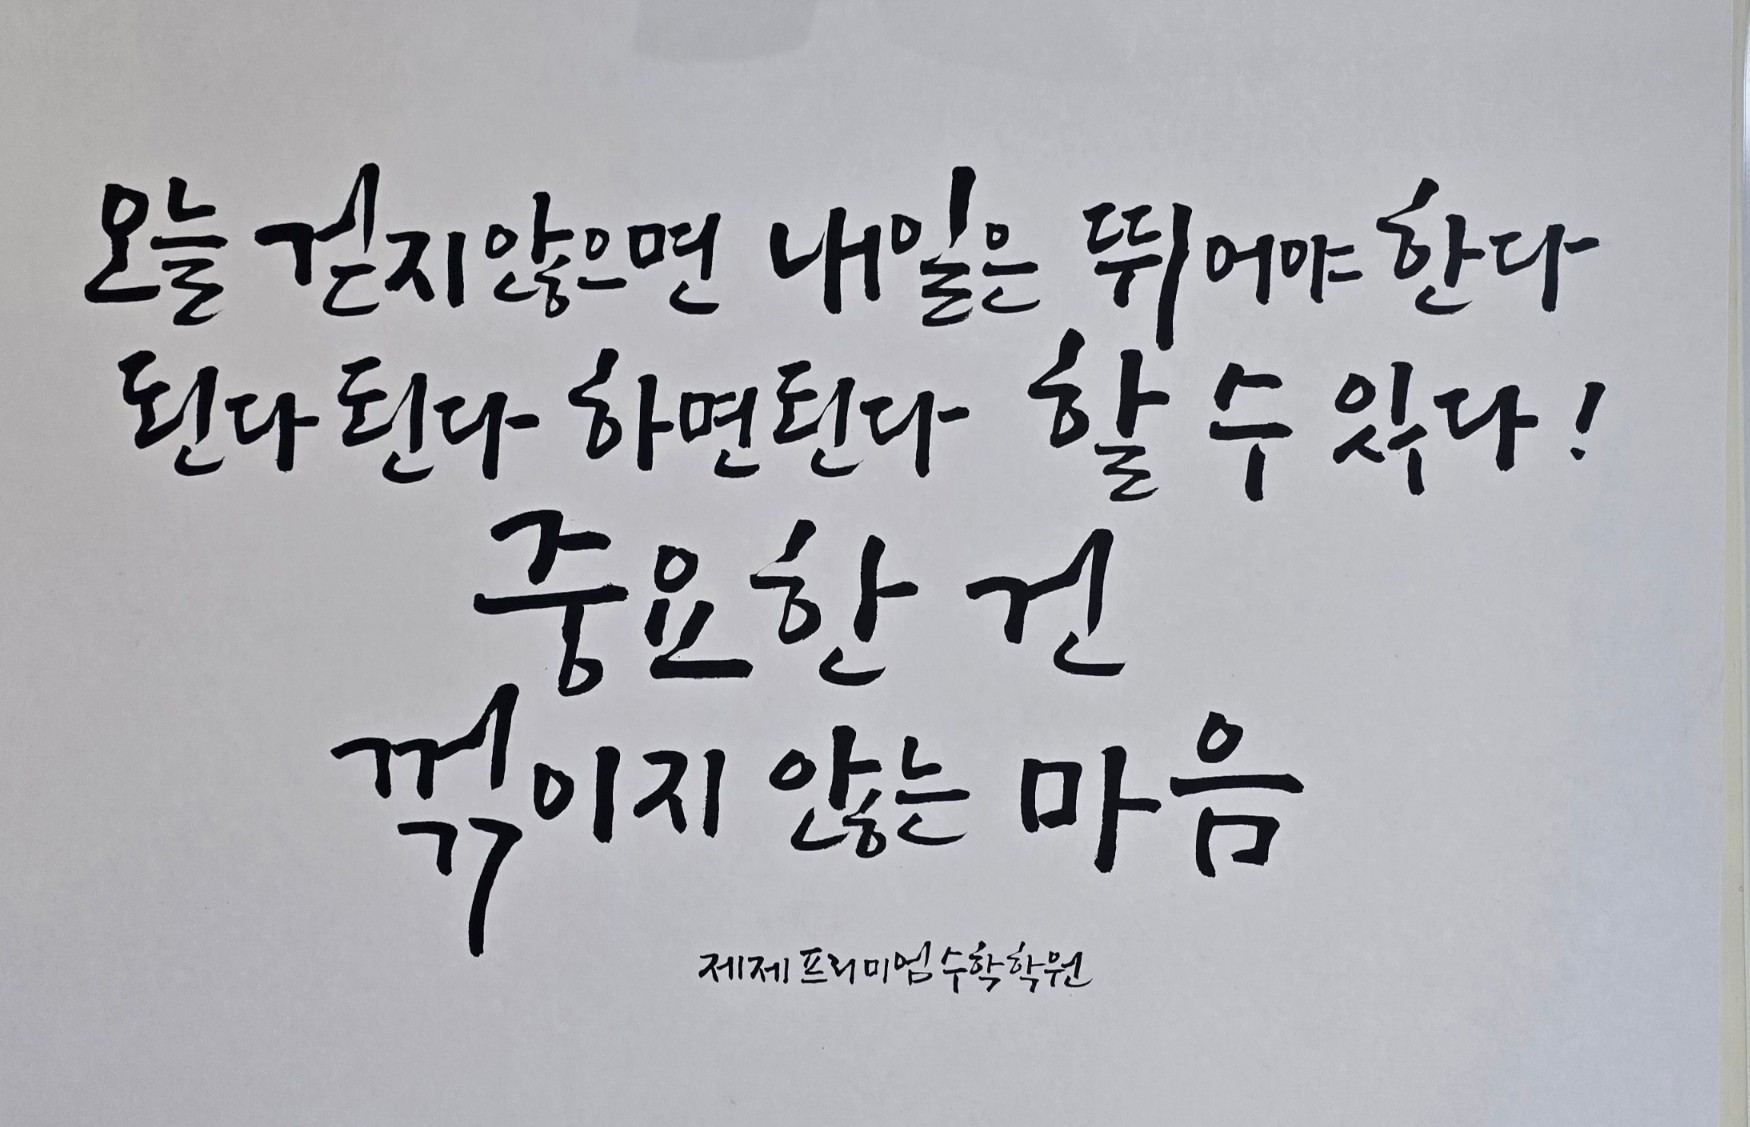 오늘 걷지 않으면 내일은 뛰어야 한다
된다 된다 하면된다 할 수 있다!
중요한 건
꺾이지 않는 마음
제제 프리미엄 수학학원